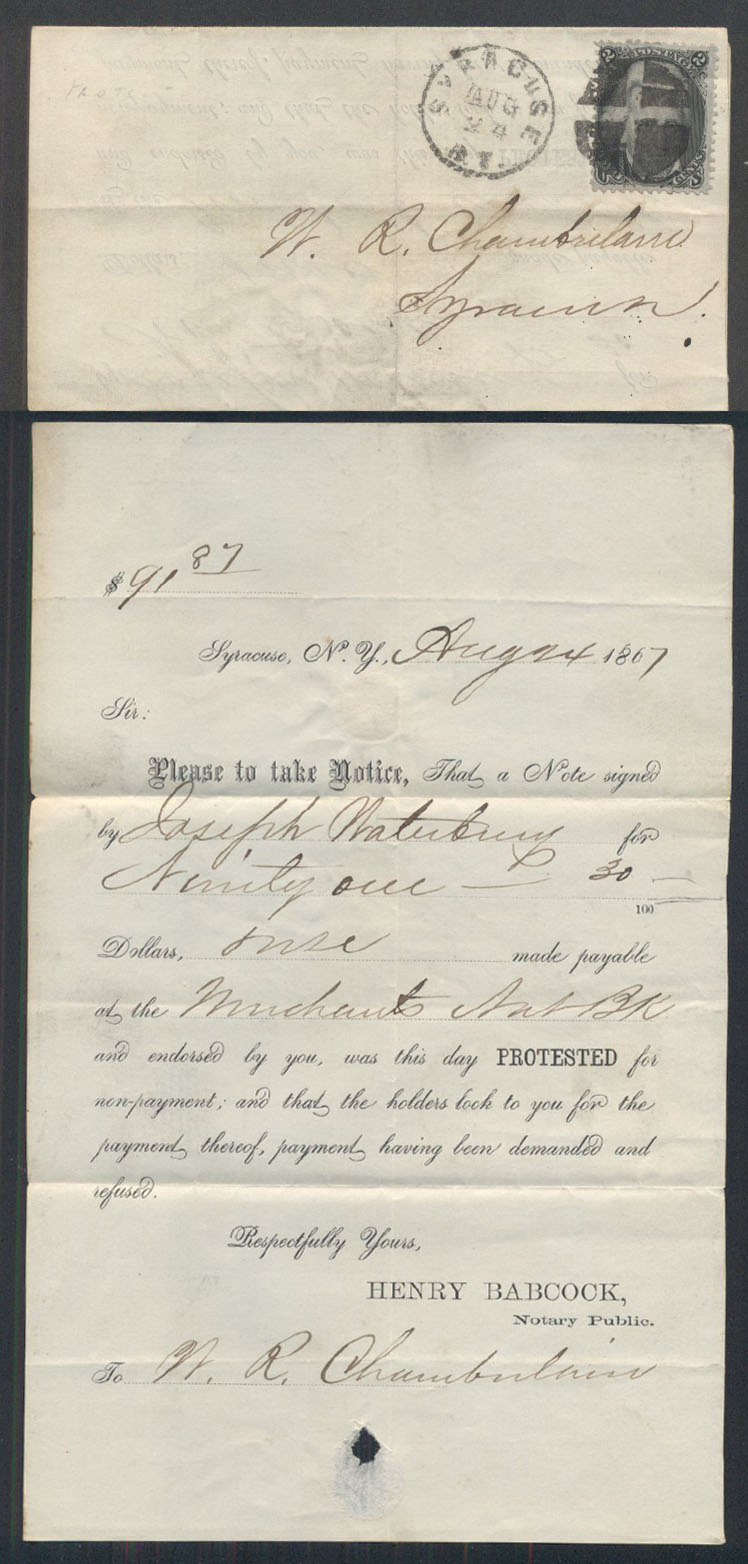 SYRACUSE N.Y.
AUG
24
W. R. Chamberlain
Syracuse.
$91 87
Syracuse, N. Y., Aug 24 1867
Sir:
Please to take Notice, That a Note signed
by Joseph Waterbury for
Ninity one — 30
100
Dollars, made payable
at the Merchants Nat BK
and endorsed by you, was this day PROTESTED for
non-payment; and that the holders look to you for the
payment thereof, payment having been demanded and
refused.
Respectfully Yours,
HENRY BABCOCK,
Notary Public.
To W. R. Chamberlain